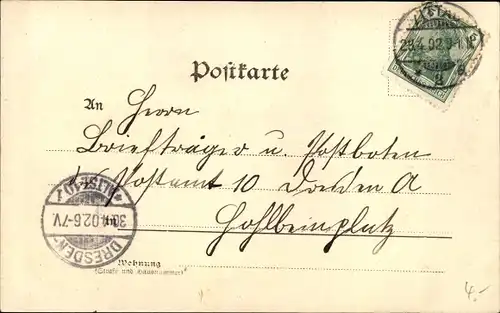 29.4.02.9-1
Postkarte
An Herrn
Briefträger u. Postboten
Postamt 10 Dresden A
Holbeinplatz
DRESDEN-ALTST. 10
30.4.02.6-7V.
Wohnung
(Straße und Hausnummer)
4.-